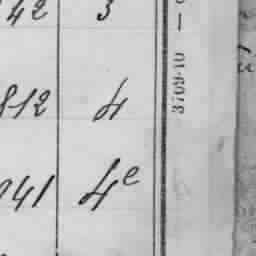 42 3
812 4
941 4e
3709-10 —